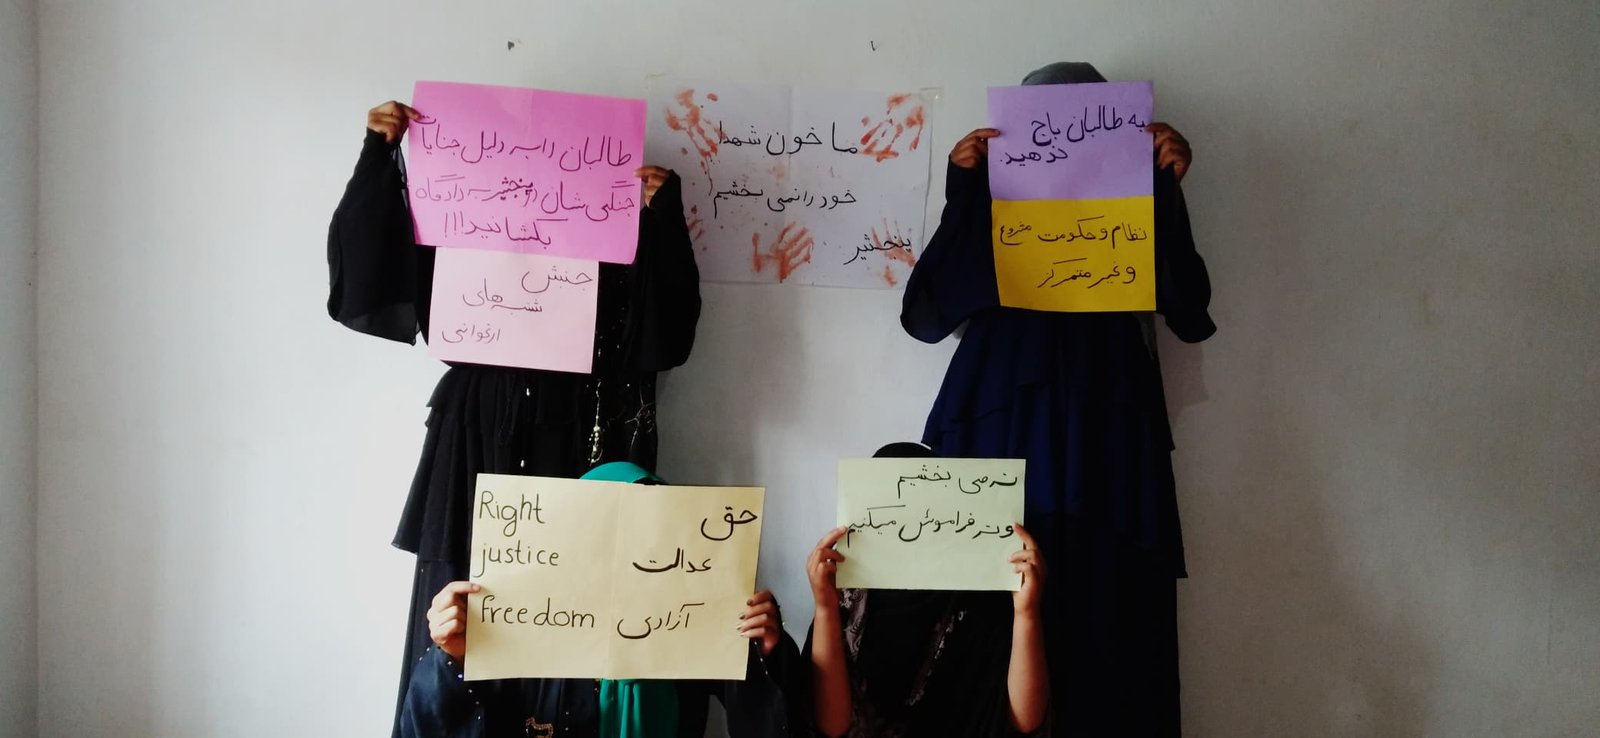 طالبان را به دلیل جنایات
جنگی شان در پنجشیر به دادگاه
بکشانید!!!
جنبش
شنبه های
ارغوانی
ما خون شهدا
خود را نمی بخشیم
پنجشیر
به طالبان باج
ندهید.
نظام و حکومت مشروع
و غیر متمرکز
Right حق
justice عدالت
freedom آزادی
نه می بخشیم
و نه فراموش میکنیم